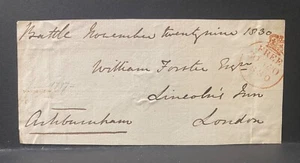 Battle November twentynine 1830
William Forster Esqre
Lincoln's Inn
Ashburnham London
FREE